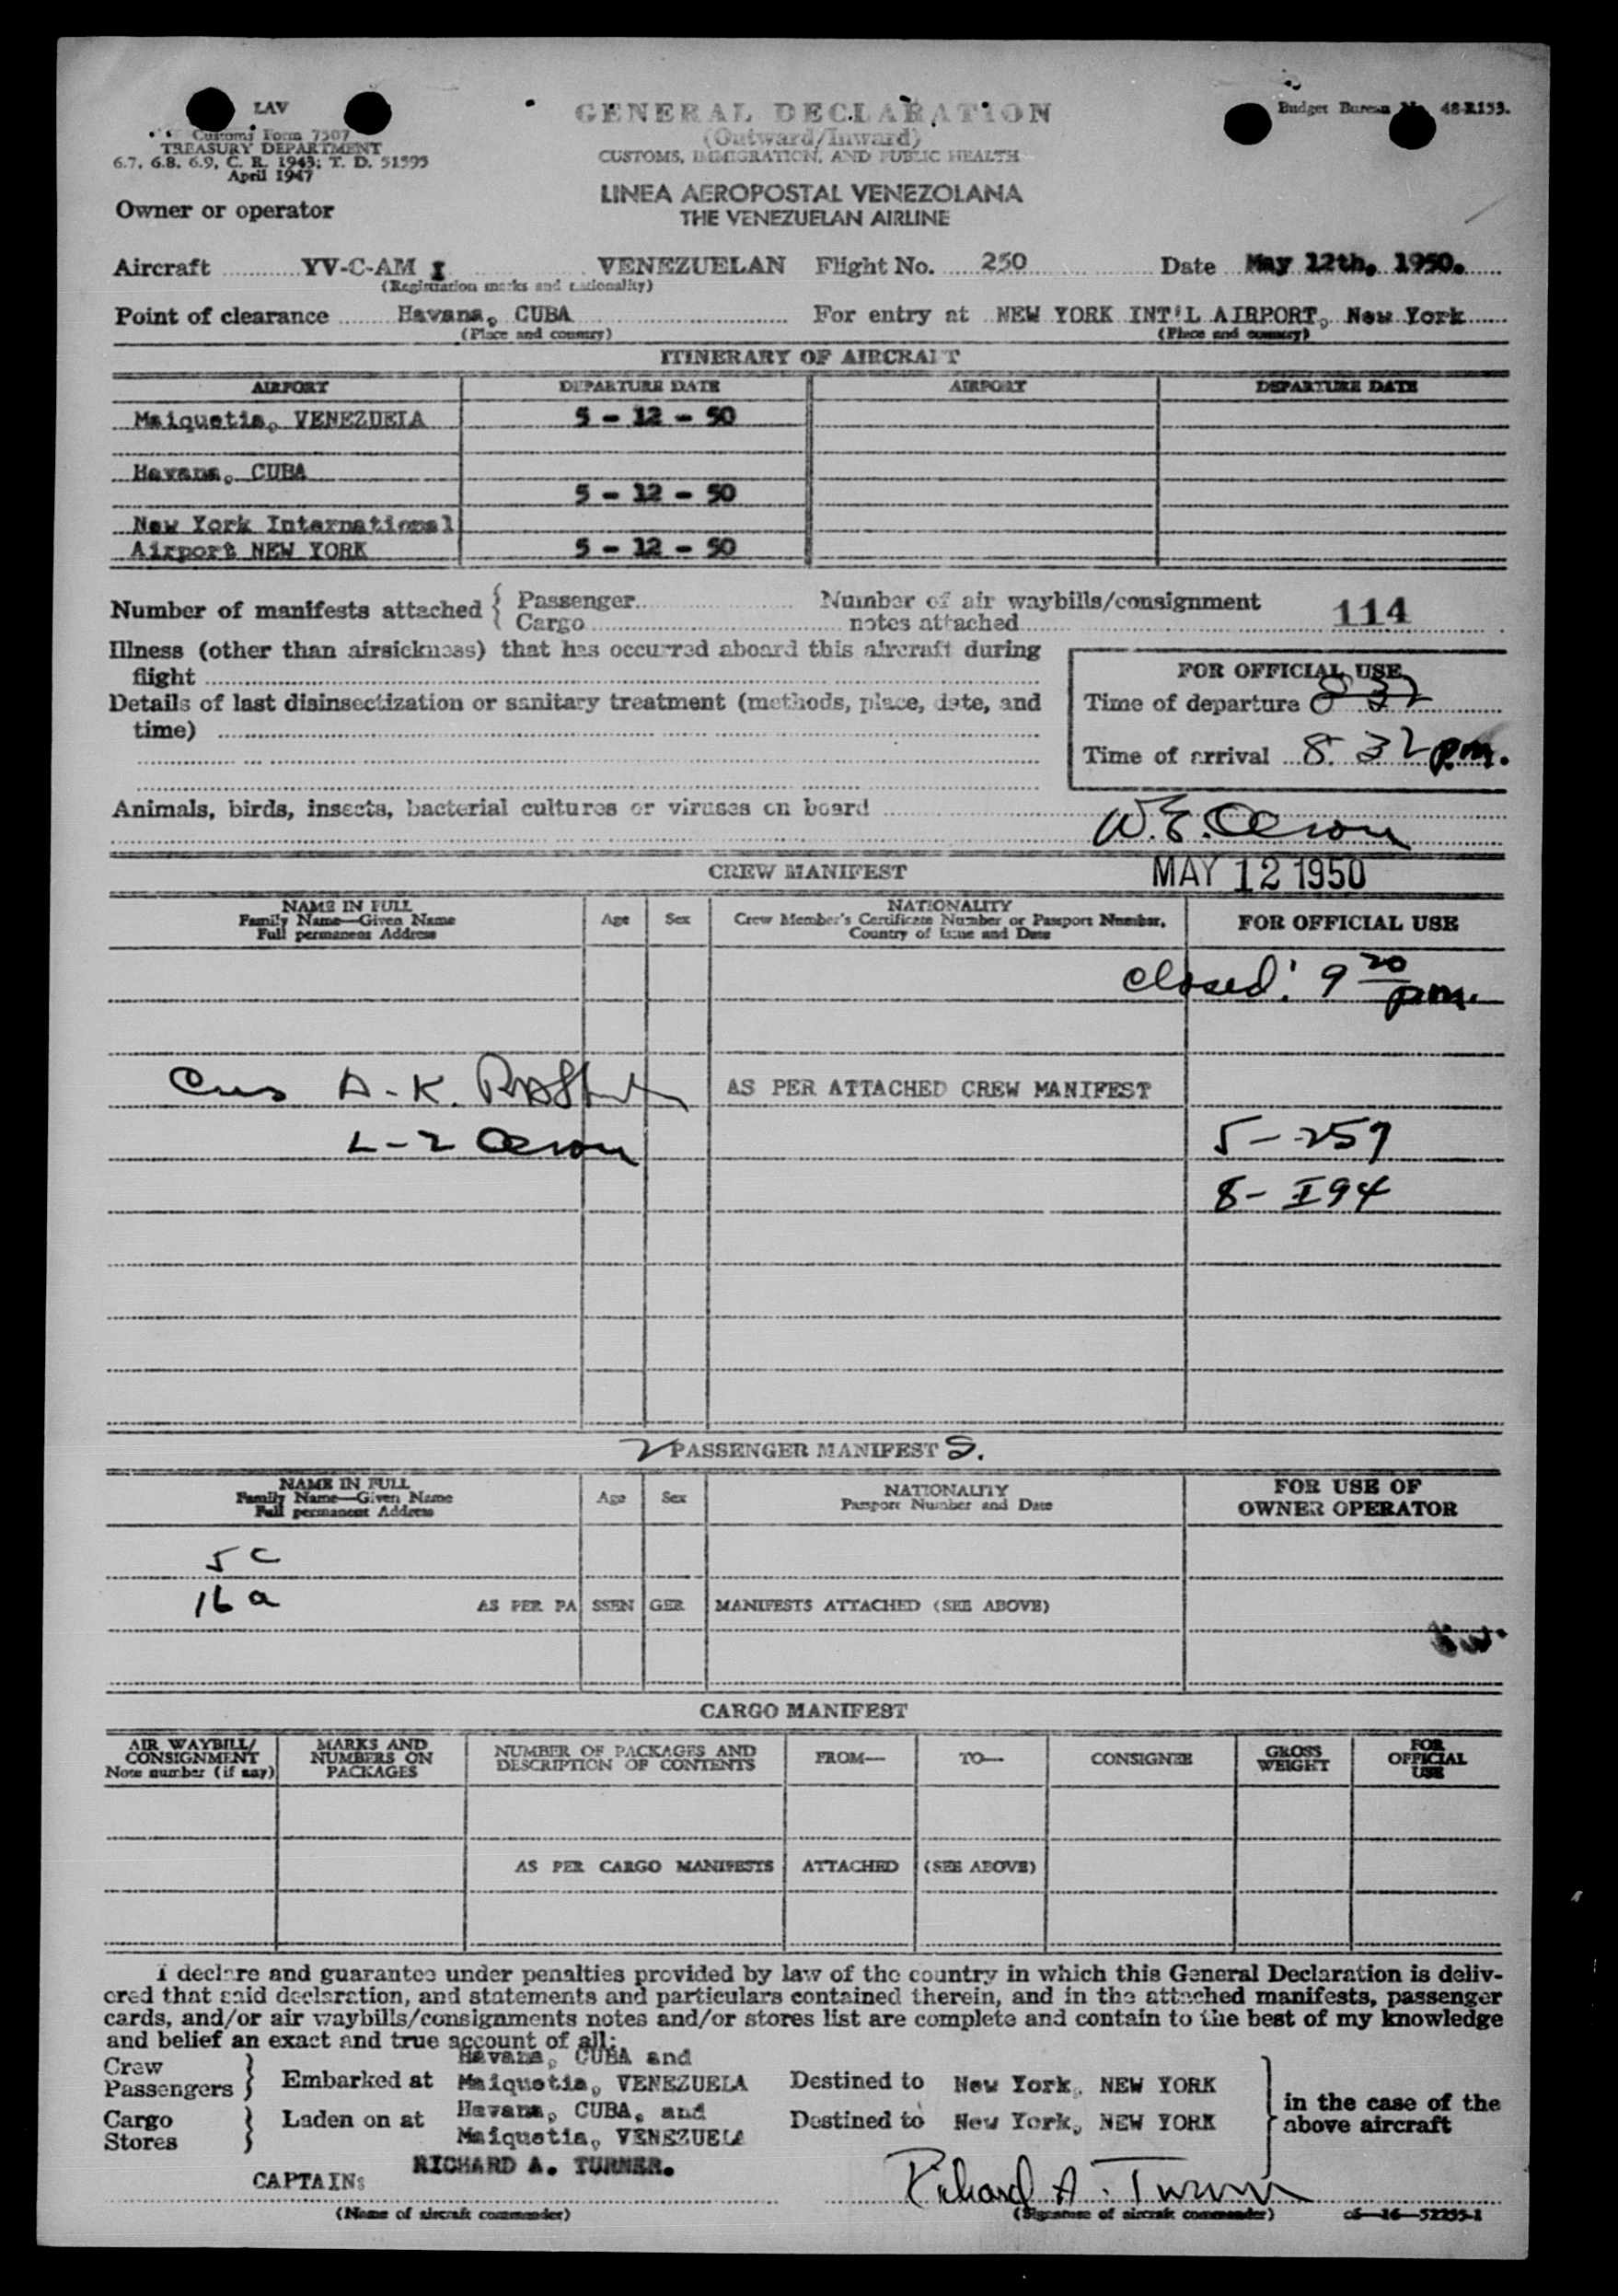 LAV
Customs Form 7507
TREASURY DEPARTMENT
6.7, 6.8, 6.9, C. R. 1943; T. D. 51595
April 1947
GENERAL DECLARATION
(Outward/Inward)
CUSTOMS, IMMIGRATION, AND PUBLIC HEALTH
Budget Bureau No. 48-R153.
LINEA AEROPOSTAL VENEZOLANA
THE VENEZUELAN AIRLINE
Owner or operator
Aircraft YV-C-AM I VENEZUELAN Flight No. 250 Date May 12th, 1950.
(Registration marks and nationality)
Point of clearance Havana, CUBA For entry at NEW YORK INT'L AIRPORT, New York
(Place and country) (Place and country)
ITINERARY OF AIRCRAFT
AIRPORT DEPARTURE DATE AIRPORT DEPARTURE DATE
Maiquetia, VENEZUELA 5 - 12 - 50
Havana, CUBA
5 - 12 - 50
New York International
Airport NEW YORK 5 - 12 - 50
Number of manifests attached { Passenger Number of air waybills/consignment
Cargo notes attached 114
Illness (other than airsickness) that has occurred aboard this aircraft during
flight
Details of last disinsectization or sanitary treatment (methods, place, date, and
time)
FOR OFFICIAL USE
Time of departure 8 32
Time of arrival 8. 32 p.m.
Animals, birds, insects, bacterial cultures or viruses on board
W.E.
CREW MANIFEST
MAY 12 1950
NAME IN FULL
Family Name—Given Name
Full permanent Address
Age Sex
NATIONALITY
Crew Member's Certificate Number or Passport Number,
Country of Issue and Date
FOR OFFICIAL USE
closed: 9 20 p.m.
Cus A-K.
AS PER ATTACHED CREW MANIFEST
L-2
5-257
8- I94
2 PASSENGER MANIFEST S.
NAME IN FULL
Family Name—Given Name
Full permanent Address
Age Sex
NATIONALITY
Passport Number and Date
FOR USE OF
OWNER OPERATOR
5 c
16 a
AS PER PASSENGER MANIFESTS ATTACHED (SEE ABOVE)
CARGO MANIFEST
AIR WAYBILL/
CONSIGNMENT
Note number (if any)
MARKS AND
NUMBERS ON
PACKAGES
NUMBER OF PACKAGES AND
DESCRIPTION OF CONTENTS
FROM—
TO—
CONSIGNEE
GROSS
WEIGHT
FOR
OFFICIAL
USE
AS PER CARGO MANIFESTS ATTACHED (SEE ABOVE)
I declare and guarantee under penalties provided by law of the country in which this General Declaration is deliv-
ered that said declaration, and statements and particulars contained therein, and in the attached manifests, passenger
cards, and/or air waybills/consignments notes and/or stores list are complete and contain to the best of my knowledge
and belief an exact and true account of all:
Crew
Passengers } Embarked at Havana, CUBA and
Maiquetia, VENEZUELA Destined to New York, NEW YORK
Cargo
Stores } Laden on at Havana, CUBA, and
Maiquetia, VENEZUELA Destined to New York, NEW YORK
in the case of the
above aircraft
CAPTAIN: RICHARD A. TURNER.
Richard A. Turner
(Name of aircraft commander) (Signature of aircraft commander) c5—16—52295-1